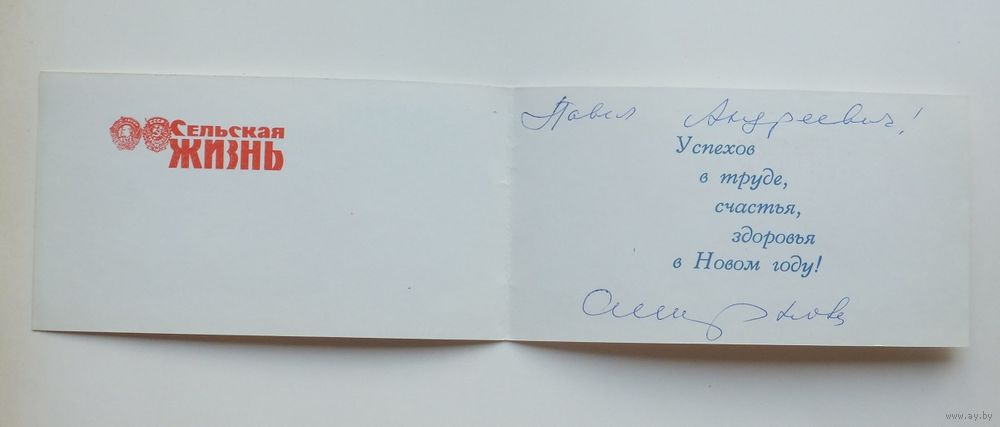 Сельская
ЖИЗНЬ
Павел Андреевич!
Успехов
в труде,
счастья,
здоровья
в Новом году!
www.ay.by